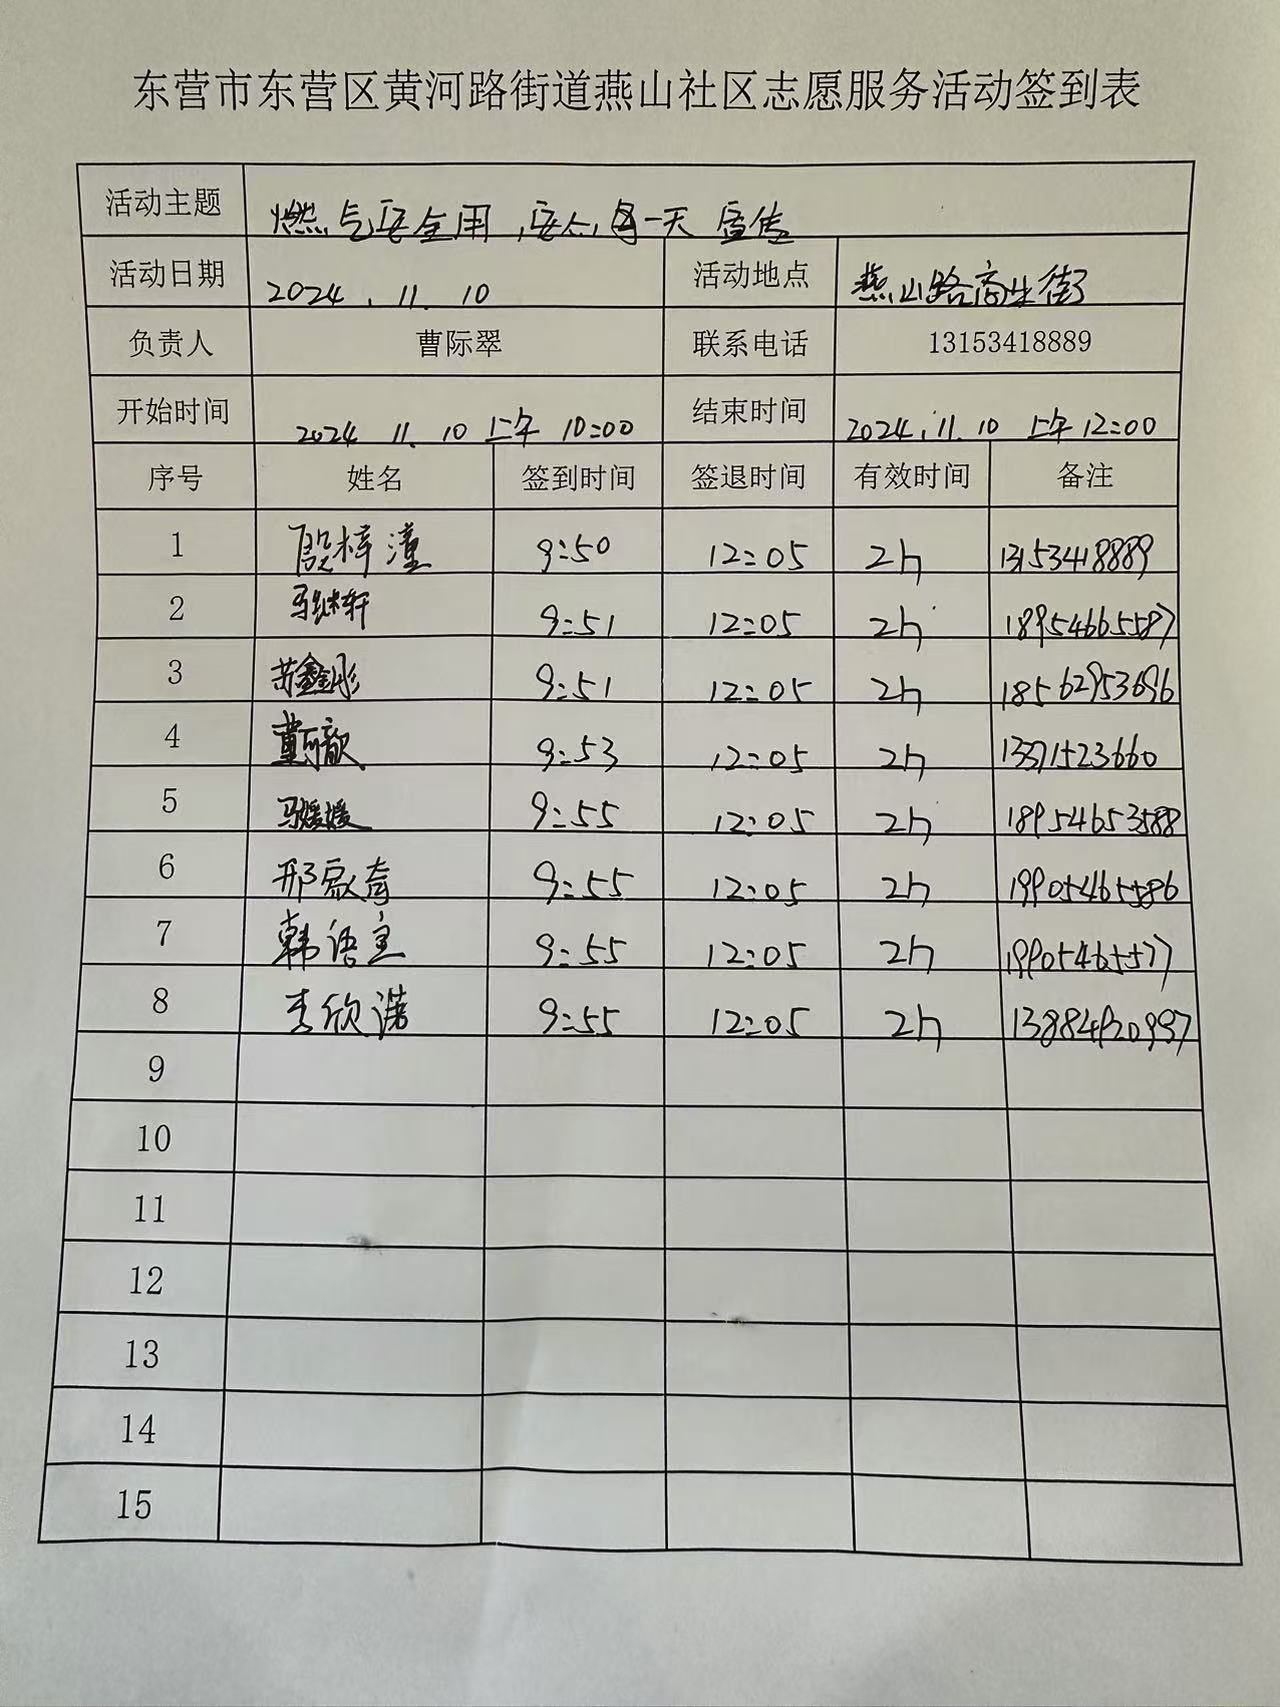 东营市东营区黄河路街道燕山社区志愿服务活动签到表
活动主题 燃气安全用,安心每一天 宣传
活动日期 2024.11.10 活动地点 燕山路商业街
负责人 曹际翠 联系电话 13153418889
开始时间 2024 11.10 上午 10:00 结束时间 2024.11.10 上午12:00
序号 姓名 签到时间 签退时间 有效时间 备注
1 殷梓潼 9:50 12:05 2h 13153418889
2 马继轩 9:51 12:05 2h 18954665587
3 苏鑫彤 9:51 12:05 2h 18562953696
4 9:53 12:05 2h 13371523660
5 马媛媛 9:55 12:05 2h 18954653588
6 邢 9:55 12:05 2h 19905465586
7 韩语 9:55 12:05 2h 19905465577
8 李欣诺 9:55 12:05 2h 13884920997
9
10
11
12
13
14
15